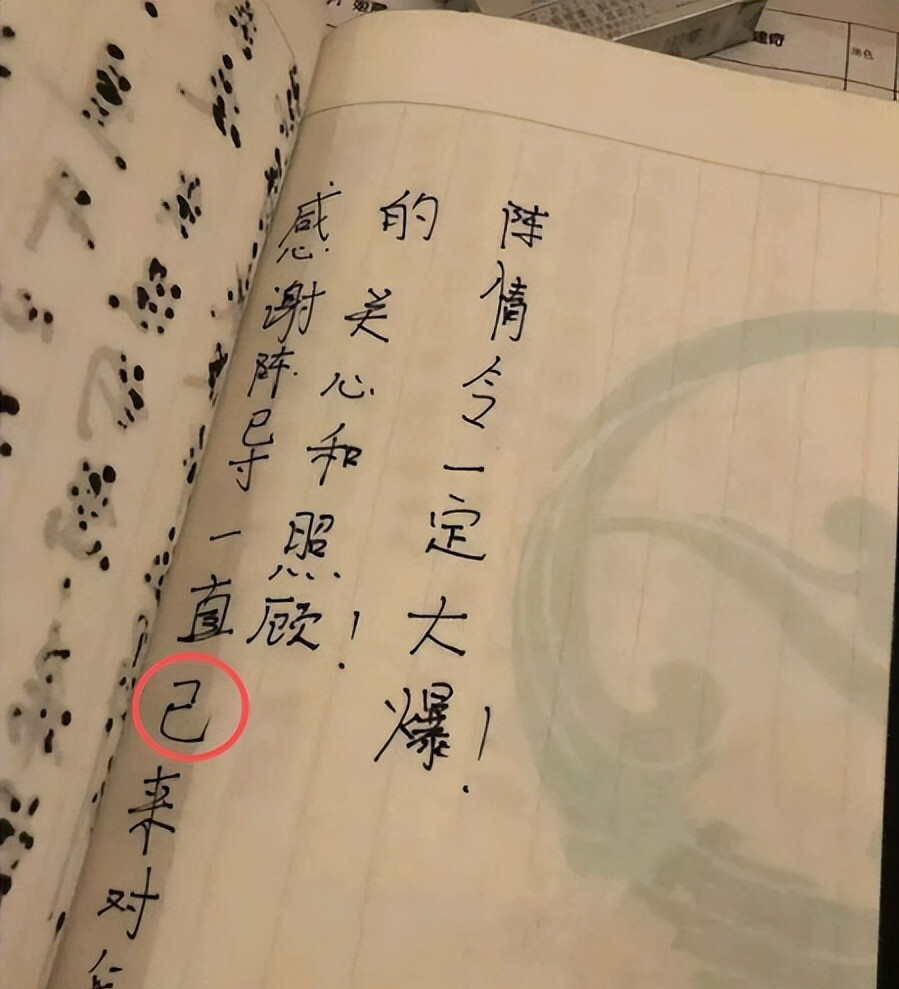 感谢陈导一直己来对
的关心和照顾!
陈情令一定大爆!